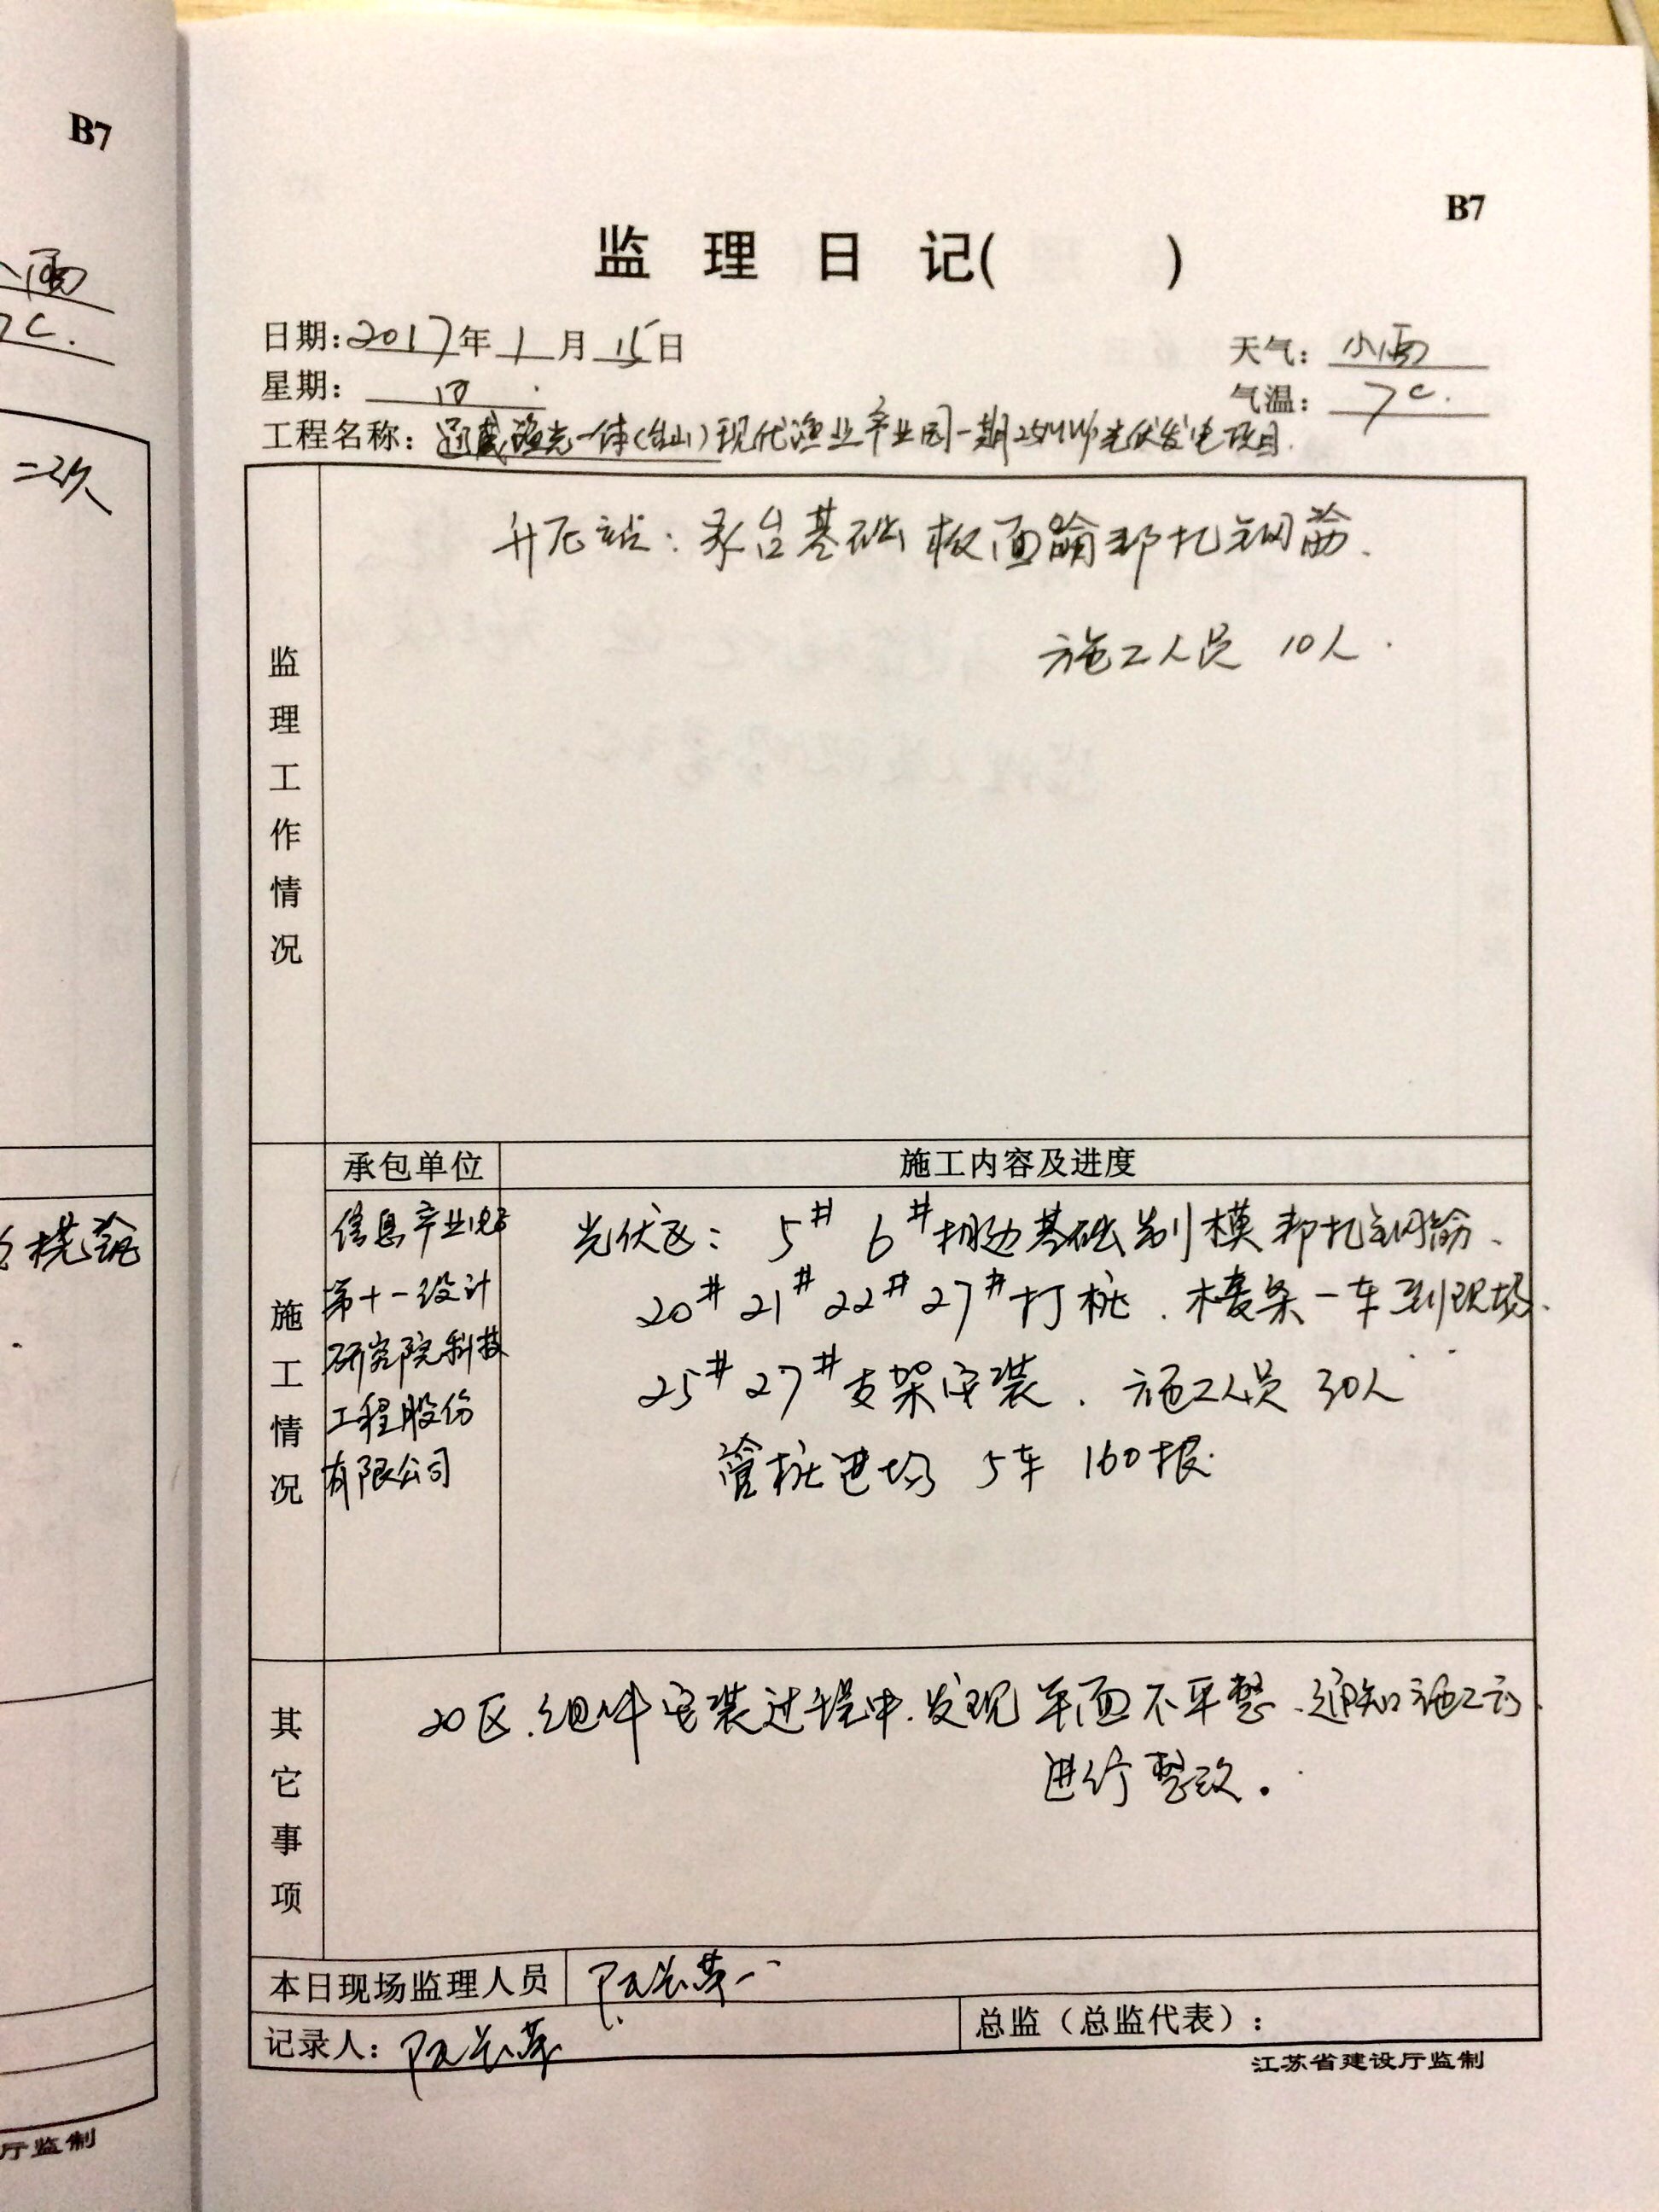 B7
小雨
7C.
二次
浇筑
厅监制
B7
监 理 日 记( )
日期:2017年1月15日
天气: 小雨
星期: 日
气温: 7C.
工程名称: 通威渔光一体(台山)现代渔业产业园一期25MWp光伏发电项目.
监理工作情况
升压站: 承台基础板面 邦扎钢筋.
施工人员 10人.
承包单位
施工内容及进度
施工情况
信息产业电子
第十一设计
研究院科技
工程股份
有限公司
光伏区: 5# 6# 基础 模 邦扎钢筋、
20# 21# 22# 27# 打桩. 檩条一车到现场.
25# 27# 支架安装. 施工人员 30人
管桩进场 5车 160根.
其它事项
20区.组件安装过程中.发现 平面不平整、通知施工方.
进行整改。
本日现场监理人员
记录人:
总监（总监代表）:
江苏省建设厅监制